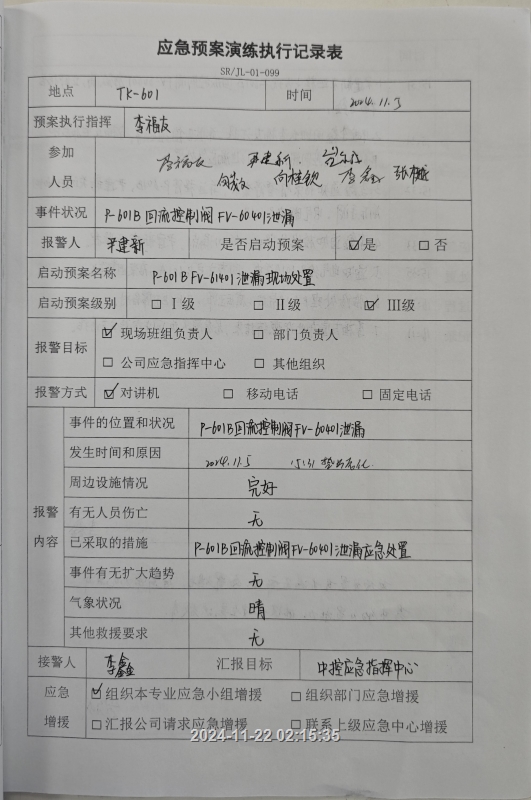 应急预案演练执行记录表
SR/JL-01-099
地点 TK-601 时间 2024.11.5
预案执行指挥 李福友
参加 李福友 尹建新
人员 向桂钦 李鑫 张楠
事件状况 P-601B回流控制阀FV-60401泄漏
报警人 尹建新 是否启动预案 ☑是 □否
启动预案名称 P-601B FV-61401泄漏现场处置
启动预案级别 □Ⅰ级 □Ⅱ级 ☑Ⅲ级
报警目标 ☑现场班组负责人 □部门负责人
□公司应急指挥中心 □其他组织
报警方式 ☑对讲机 □移动电话 □固定电话
报警内容
事件的位置和状况 P-601B回流控制阀FV-60401泄漏
发生时间和原因 2024.11.5 15:31 垫片老化
周边设施情况 完好
有无人员伤亡 无
已采取的措施 P-601B回流控制阀FV-60401泄漏应急处置
事件有无扩大趋势 无
气象状况 晴
其他救援要求 无
接警人 李鑫 汇报目标 中控应急指挥中心
应急 ☑组织本专业应急小组增援 □组织部门应急增援
增援 □汇报公司请求应急增援 □联系上级应急中心增援
2024-11-22 02:15:35